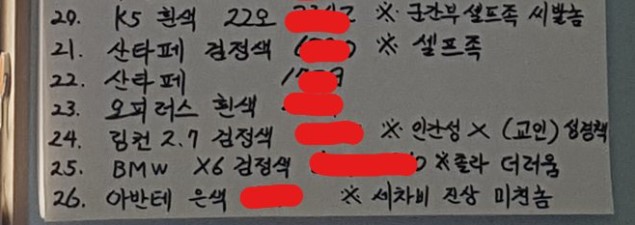 20. K5 흰색 22오 ※ 군간부 셀프족 씨발놈
21. 산타페 검정색 ※ 셀프족
22. 산타페
23. 오피러스 흰색
24. 링컨 2.7 검정색 ※ 인간성 X (교인) 성경책
25. BMW X6 검정색 ※졸라 더러움
26. 아반테 은색 ※ 세차비 진상 미친놈